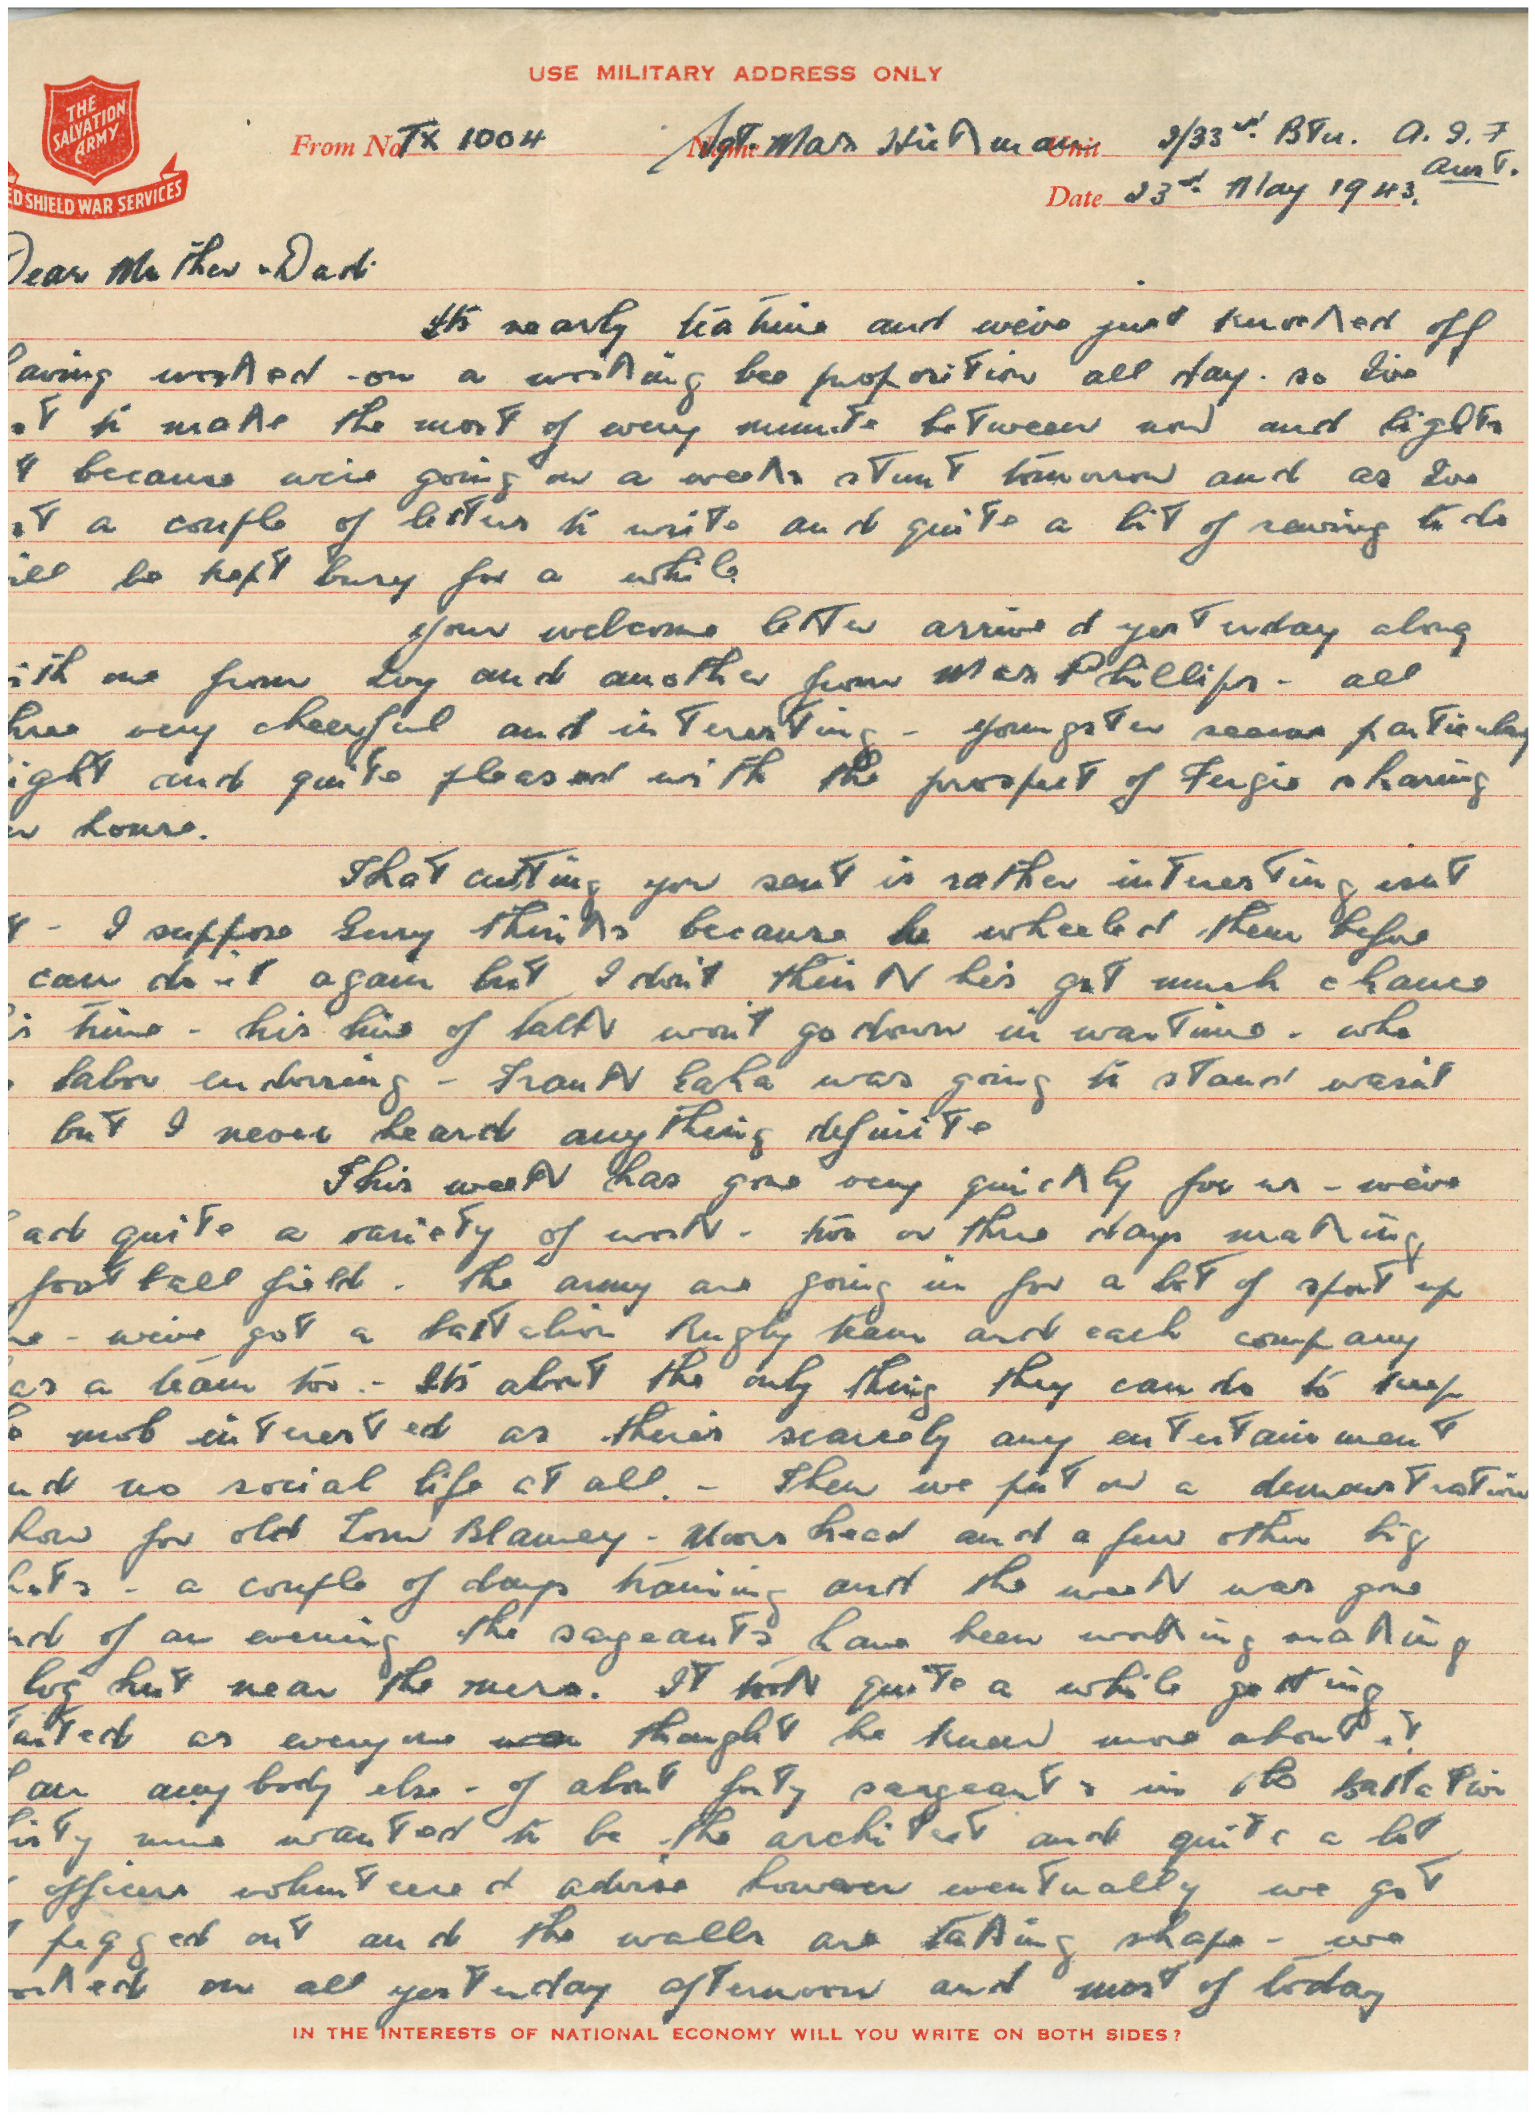 USE MILITARY ADDRESS ONLY
THE SALVATION ARMY
ED SHIELD WAR SERVICES
From No TX 1004 Name Sgt. Max Hickman Unit 2/33rd Btn. A.I.F
Aust.
Date 23rd May 1943.
Dear Mother & Dad
Its nearly teatime and weve just knocked off
aving worked on a working bee proposition all day. so Ive
ot to make the most of every minute between now and lights
t because were going on a weeks stunt tomorrow and as Ive
ot a couple of letters to write and quite a bit of sewing to do
ill be kept busy for a while
Your welcome letter arrived yesterday along
ith one from Ivy and another from Max Phillips - all
hree very cheerful and interesting - youngster seems particulary
ight and quite pleased with the prospect of Fergie sharing
er house.
That cutting you sent is rather interesting isnt
t - I suppose Gerry thinks because he wheeled them before
can do it again but I dont think hes got much chance
is time - his line of talk wont go down in wartime - who
labor endorsing - Frank Gaha was going to stand wasnt
but I never heard anything definite
This week has gone very quickly for us - weve
ad quite a variety of work - two or three days making
football field - the army are going in for a lot of sport up
re - weve got a battalion Rugby team and each company
as a team too. - Its about the only thing they can do to keep
e mob interested as theres scarcely any entertainment
nd no social life at all. - Then we put on a demonstration
how for old Tom Blamey - Morshead and a few other big
hots - a couple of days training and the week was gone
nd of an evening the sargeants have been working making
log hut near the mess. It took quite a while getting
tarted as everyone thought he knew more about it
han anybody else - of about forty sargeants in the battalion
hirty nine wanted to be the architect and quite a lot
officers volunteered advise however eventually we got
t pegged out and the walls are taking shape - we
orked on all yesterday afternoon and most of today
IN THE INTERESTS OF NATIONAL ECONOMY WILL YOU WRITE ON BOTH SIDES?